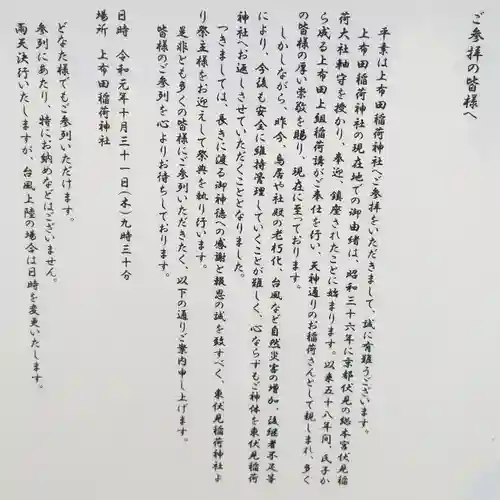 ご参拝の皆様へ
平素は上布田稲荷神社へご参拝をいただきまして、誠に有難うございます。
上布田稲荷神社の現在地での御由緒は、昭和三十六年に京都伏見の総本宮伏見稲
荷大社神守を授かり、奉迎、鎮座されたことに始まります。以来五十八年間、氏子か
ら成る上布田上組稲荷講がご奉仕を行い、天神通りのお稲荷さんとして親しまれ、多く
の皆様の厚い崇敬を賜り、現在に至っております。
しかしながら、昨今、鳥居や社殿の老朽化、台風など自然災害の増加、後継者不足等
により、今後も安全に維持管理していくことが難しく、心ならずもご神体を東伏見稲荷
神社へお返しさせていただくこととなりました。
つきましては、長きに渡る御神徳への感謝と報恩の誠を致すべく、東伏見稲荷神社よ
り祭主様をお迎えして祭典を執り行います。
是非とも多くの皆様にご参列いただきたく、以下の通りご案内申し上げます。
皆様のご参列を心よりお待ちしております。
日時　令和元年十月三十一日(木)九時三十分
場所　上布田稲荷神社
どなた様でもご参列いただけます。
参列にあたり、特にお納めなどはございません。
雨天決行いたしますが、台風上陸の場合は日時を変更いたします。